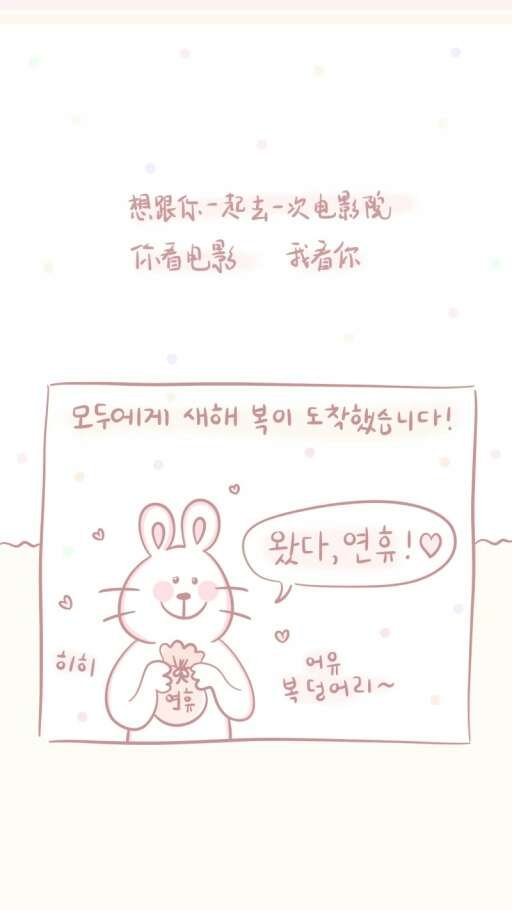 想跟你一起去一次电影院
你看电影 我看你
모두에게 새해 복이 도착했습니다!
왔다, 연휴!♡
히히
연휴
어유
복덩어리~